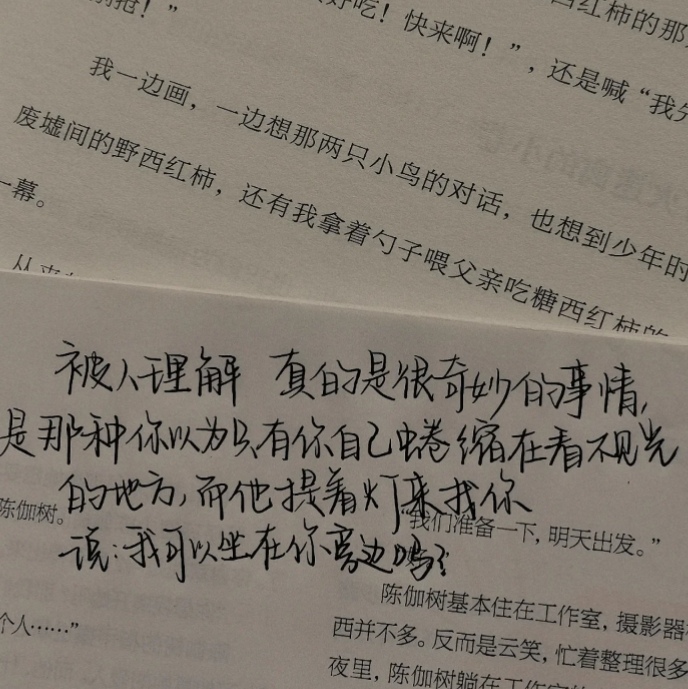 抢！”
好吃！快来啊！”，还是喊“我先
西红柿的那
我一边画，一边想那两只小鸟的对话，也想到少年时
废墟间的野西红柿，还有我拿着勺子喂父亲吃糖西红柿的
一幕。
被人理解 真的是很奇妙的事情，
是那种你以为只有你自己蜷缩在看不见光
的地方，而他提着灯来找你
说：我可以坐在你旁边吗？
陈伽树。
我们准备一下，明天出发。”
陈伽树基本住在工作室，摄影器
个人……”
西并不多。反而是云笑，忙着整理很多
夜里，陈伽树躺在工作室的